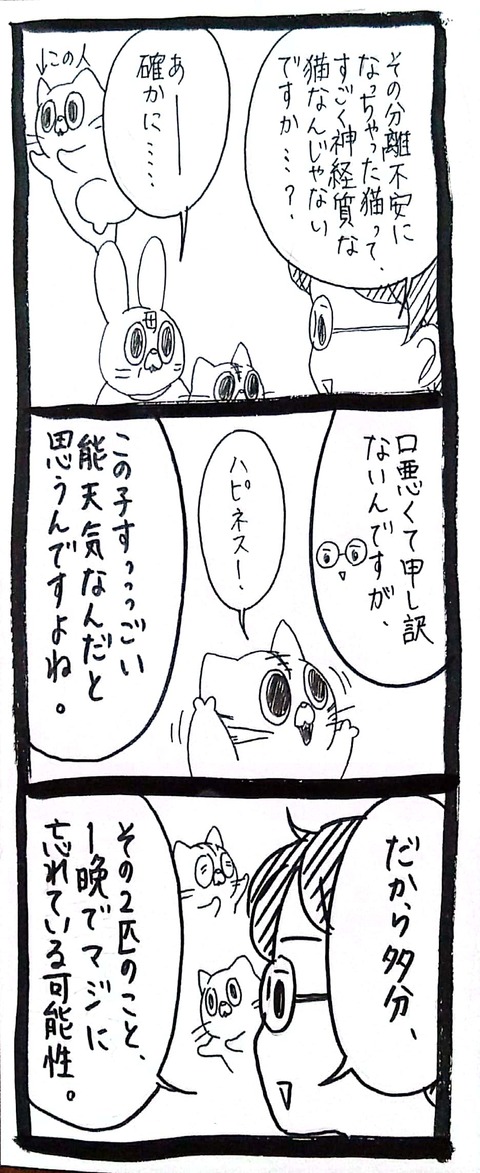 その分離不安に
なっちゃった猫って、
すごく神経質な
猫なんじゃない
ですか…？
あ———
確かに……
↓この人
母
口悪くて申し訳
ないんですが、
ハピネスー！
この子すっっっごい
能天気なんだと
思うんですよね。
だから多分、
その2匹のこと、
1晩でマジに
忘れている可能性。